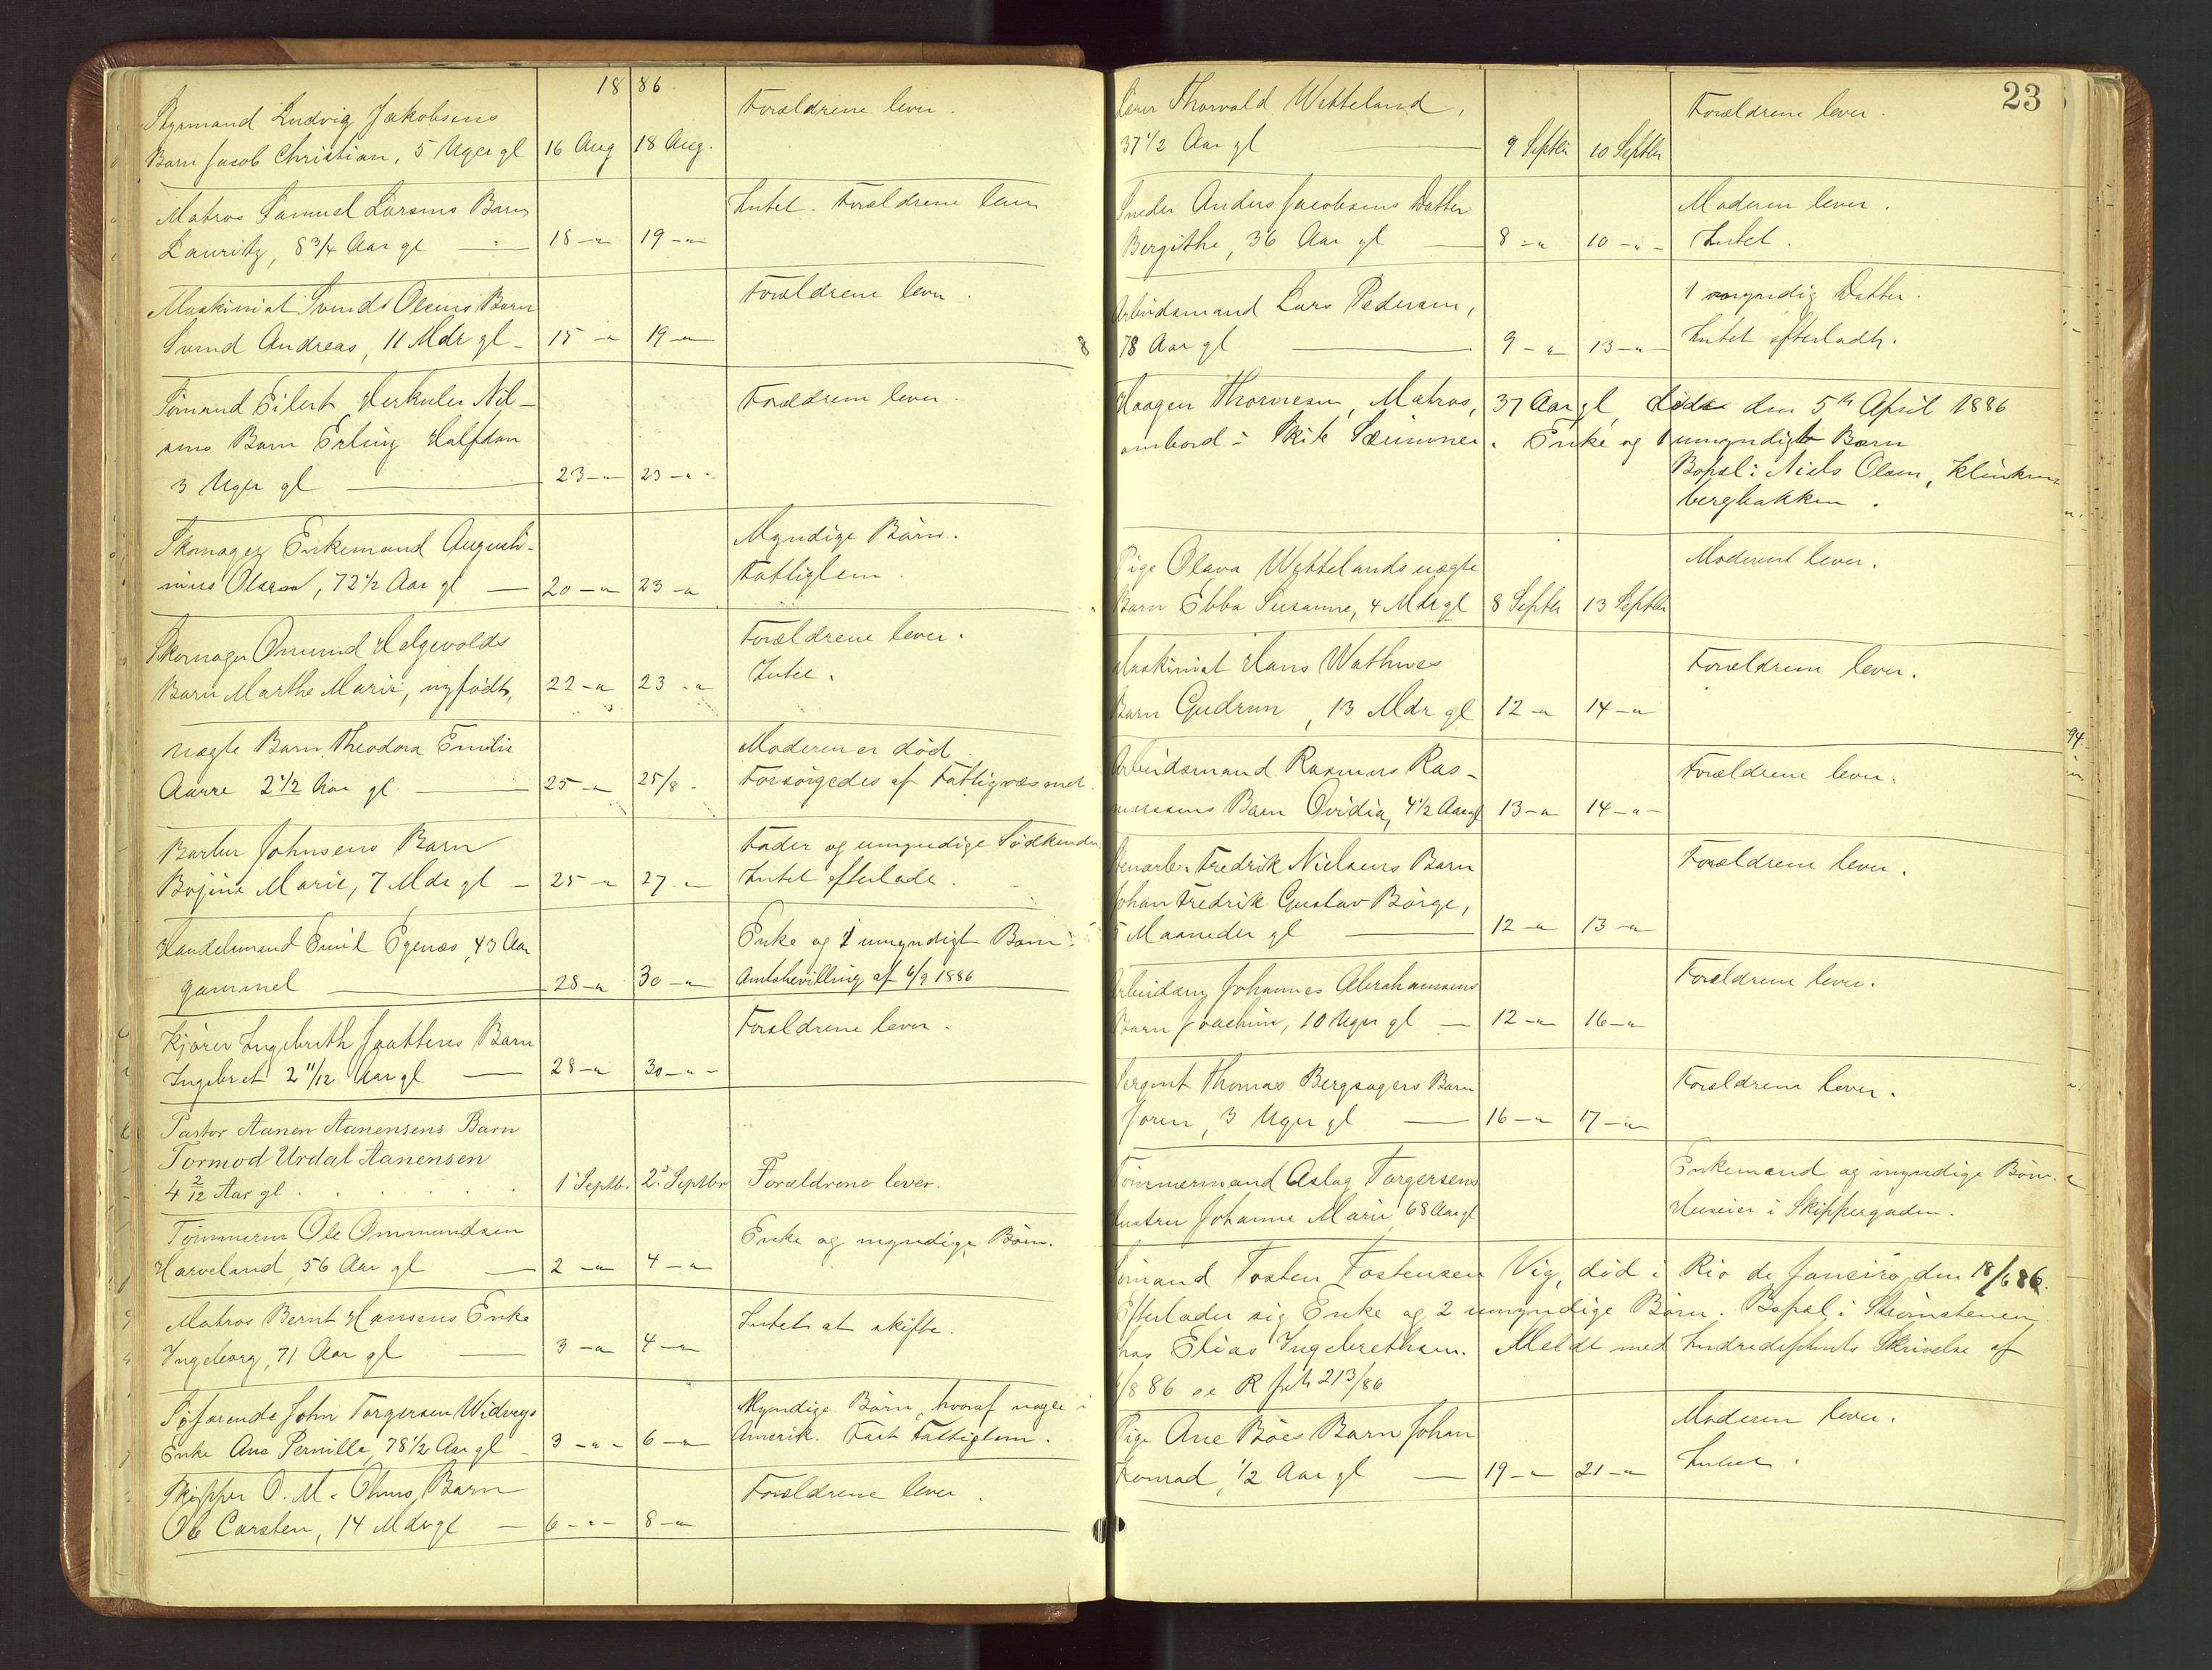 18 86
Styrmand Ludvig Jakobsens
Barn Jacob Christian, 5 Uger gl 16 Aug 18 Aug. Forældrene lever.
Matros Samuel Larsens Barn
Lauritz, 8 3/4 Aar gl — 18 -"- 19 -"- Intet. Forældrene lever
Maskinist Svend Olsens Barn
Svend Andreas, 11 Mdr gl - 15 -"- 19 -"- Forældrene lever.
Sømand Eilert Herkules Nil-
sens Barn Erling Halfdan
3 Uger gl — 23 -"- 23 -"- Forældrene lever.
Skomager Enkemand Augusti-
nius Olsen, 72 1/2 Aar gl — 20 -"- 23 -"- Myndige Børn.
Fattiglem.
Skomager Omund Helgevolds
Barn Marthe Marie, nyfødt, 22 -"- 23 -"- Forældrene lever.
Intet.
uægte Barn Theodora Emilie
Aarre 2 1/2 Aar gl — 25 -"- 25/8 - Moderen er død
Forsørgedes af Fattigvæsenet.
Barber Johnsens Barn
Bojine Marie, 7 Mdr gl - 25 -"- 27 -"- Fader og umyndige Sødskende
Intet efterladt.
Handelsmand Emil Egenæs, 43 Aar
gammel — 28 -"- 30 -"- Enke og 1 umyndigt Barn
Amtsbevilling af 6/9 1886
Kjører Ingebreth Jaattens Barn
Ingebret 2 11/12 Aar gl — 28 -"- 30 -"- Forældrene lever.
Pastor Aanen Aanensens Barn
Tormod Urdal Aanensen
4 2/12 Aar gl . . . . 1 Septb. 2 Septbr Forældrene lever.
Tømmerm Ole Ommundsen
Harveland, 56 Aar gl — 2 -"- 4 -"- Enke og myndige Børn.
Matros Bernt Hansens Enke
Ingeborg, 71 Aar gl — 3 -"- 4 -"- Intet at skifte.
Søfarende John Torgersen Widveys
Enke Ane Pernille, 78 1/2 Aar gl - 3 -"- 6 -"- Myndige Børn, hvoraf nogle i
Amerik. Fast Fattiglem.
Skipper O. M. Ohms Barn
Ole Carsten, 14 Mdr gl — 6 -"- 8 -"- Forældrene lever.
23
Lærer Thorvald Wetteland,
37 1/2 Aar gl — 9 Septbr 10 Septbr Forældrene lever.
Snedker Anders Jacobsens Datter
Bergithe, 36 Aar gl — 8 -"- 10 -"- Moderen lever.
Intet.
Arbeidsmand Lars Pedersen,
78 Aar gl — 9 -"- 13 -"- 1 myndig Datter.
Intet efterladt.
Haagen Thorsen, Matros, 37 Aar gl, døde den 5te April 1886
ombord i Skib Særimner. Enke og 1 umyndigt Barn
Bopæl: Niels Olsen, Klinken-
bergbakken.
Pige Olava Wettelands uægte
Barn Ebba Susanne, 4 Mdr gl 8 Septbr 13 Septbr Moderen lever.
Maskinist Hans Wathnes
Barn Gudrun, 13 Mdr gl 12 -"- 14 -"- Forældrene lever.
Arbeidsmand Rasmus Ras-
mussens Barn Ovidia, 4 1/2 Aar gl 13 -"- 14 -"- Forældrene lever.
Stenarb. Fredrik Nielsens Barn
Johan Fredrik Gustav Børge,
5 Maaneder gl — 12 -"- 13 -"- Forældrene lever.
Arbeidsm Johannes Abrahamsens
Barn Joachim, 10 Uger gl — 12 -"- 16 -"- Forældrene lever.
Sergent Thomas Bergsagers Barn
Jorun, 3 Uger gl — 16 -"- 17 -"- Forældrene lever.
Tømmermand Aslag Torgersens
Hustru Johanne Marie, 68 Aar gl Enkemand og myndige Børn.
Huseier i Skippergaden.
Sømand Tosten Tostensen Vig, død i Rio de Janeiro den 18/6 86.
Efterlader sig Enke og 2 umyndige Børn. Bopæl i Strømstenen
hos Elias Ingebrethsen. Meldt med Indredeptmts Skrivelse af
/8 86 se R Prt 213/86
Pige Ane Bøes Barn Johan
Konrad, 1/2 Aar gl — 19 -"- 21 -"- Moderen lever.
Intet.